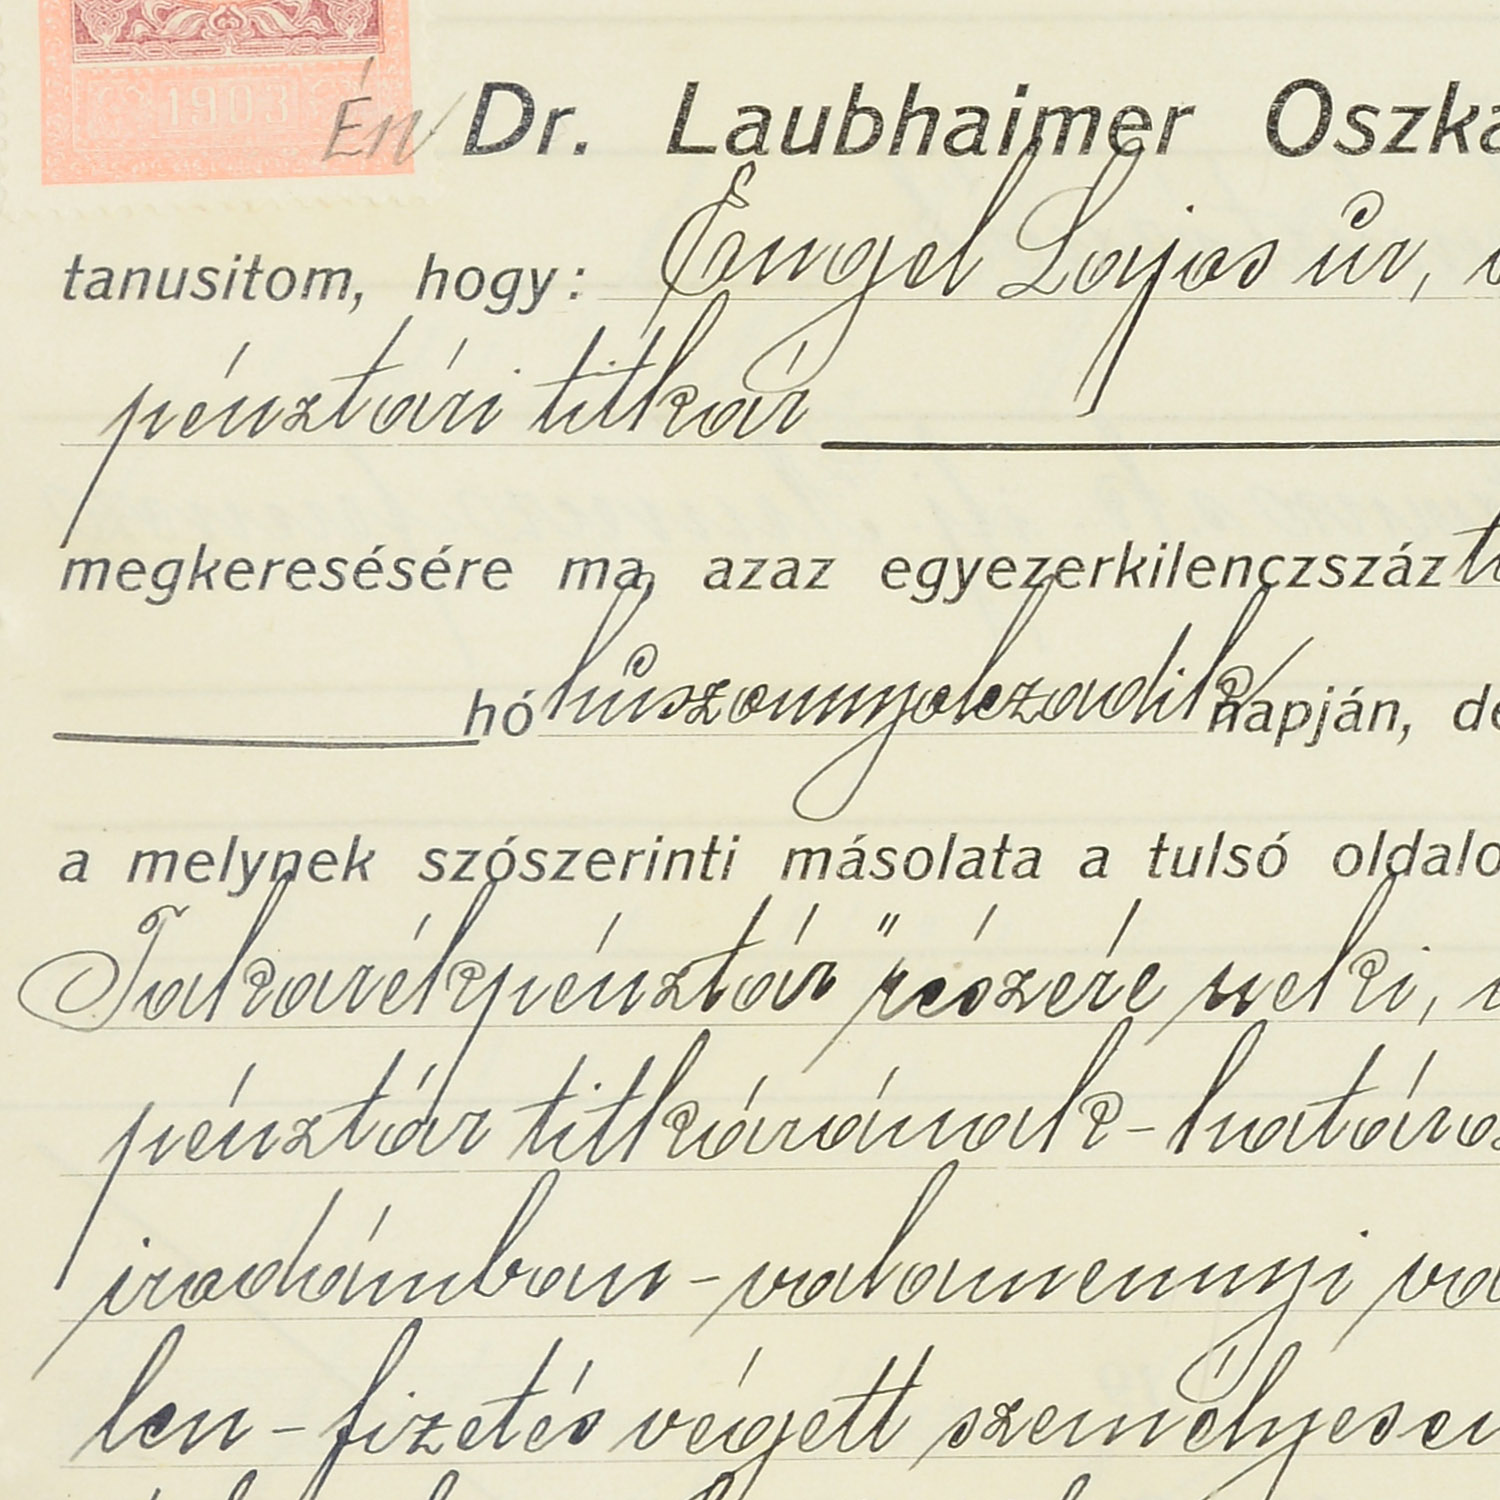 1903
Én Dr. Laubhaimer Oszká
tanusitom, hogy: Engel Lajos úr,
pénztári titkár
megkeresésére ma, azaz egyezerkilenczszáz
hó huszonnyolczadik napján, de
a melynek szószerinti másolata a tulsó oldalo
Takarékpénztár" részére neki,
pénztár titkárának - határo
irodámban - valamennyi va
len - fizetés végett személyesen